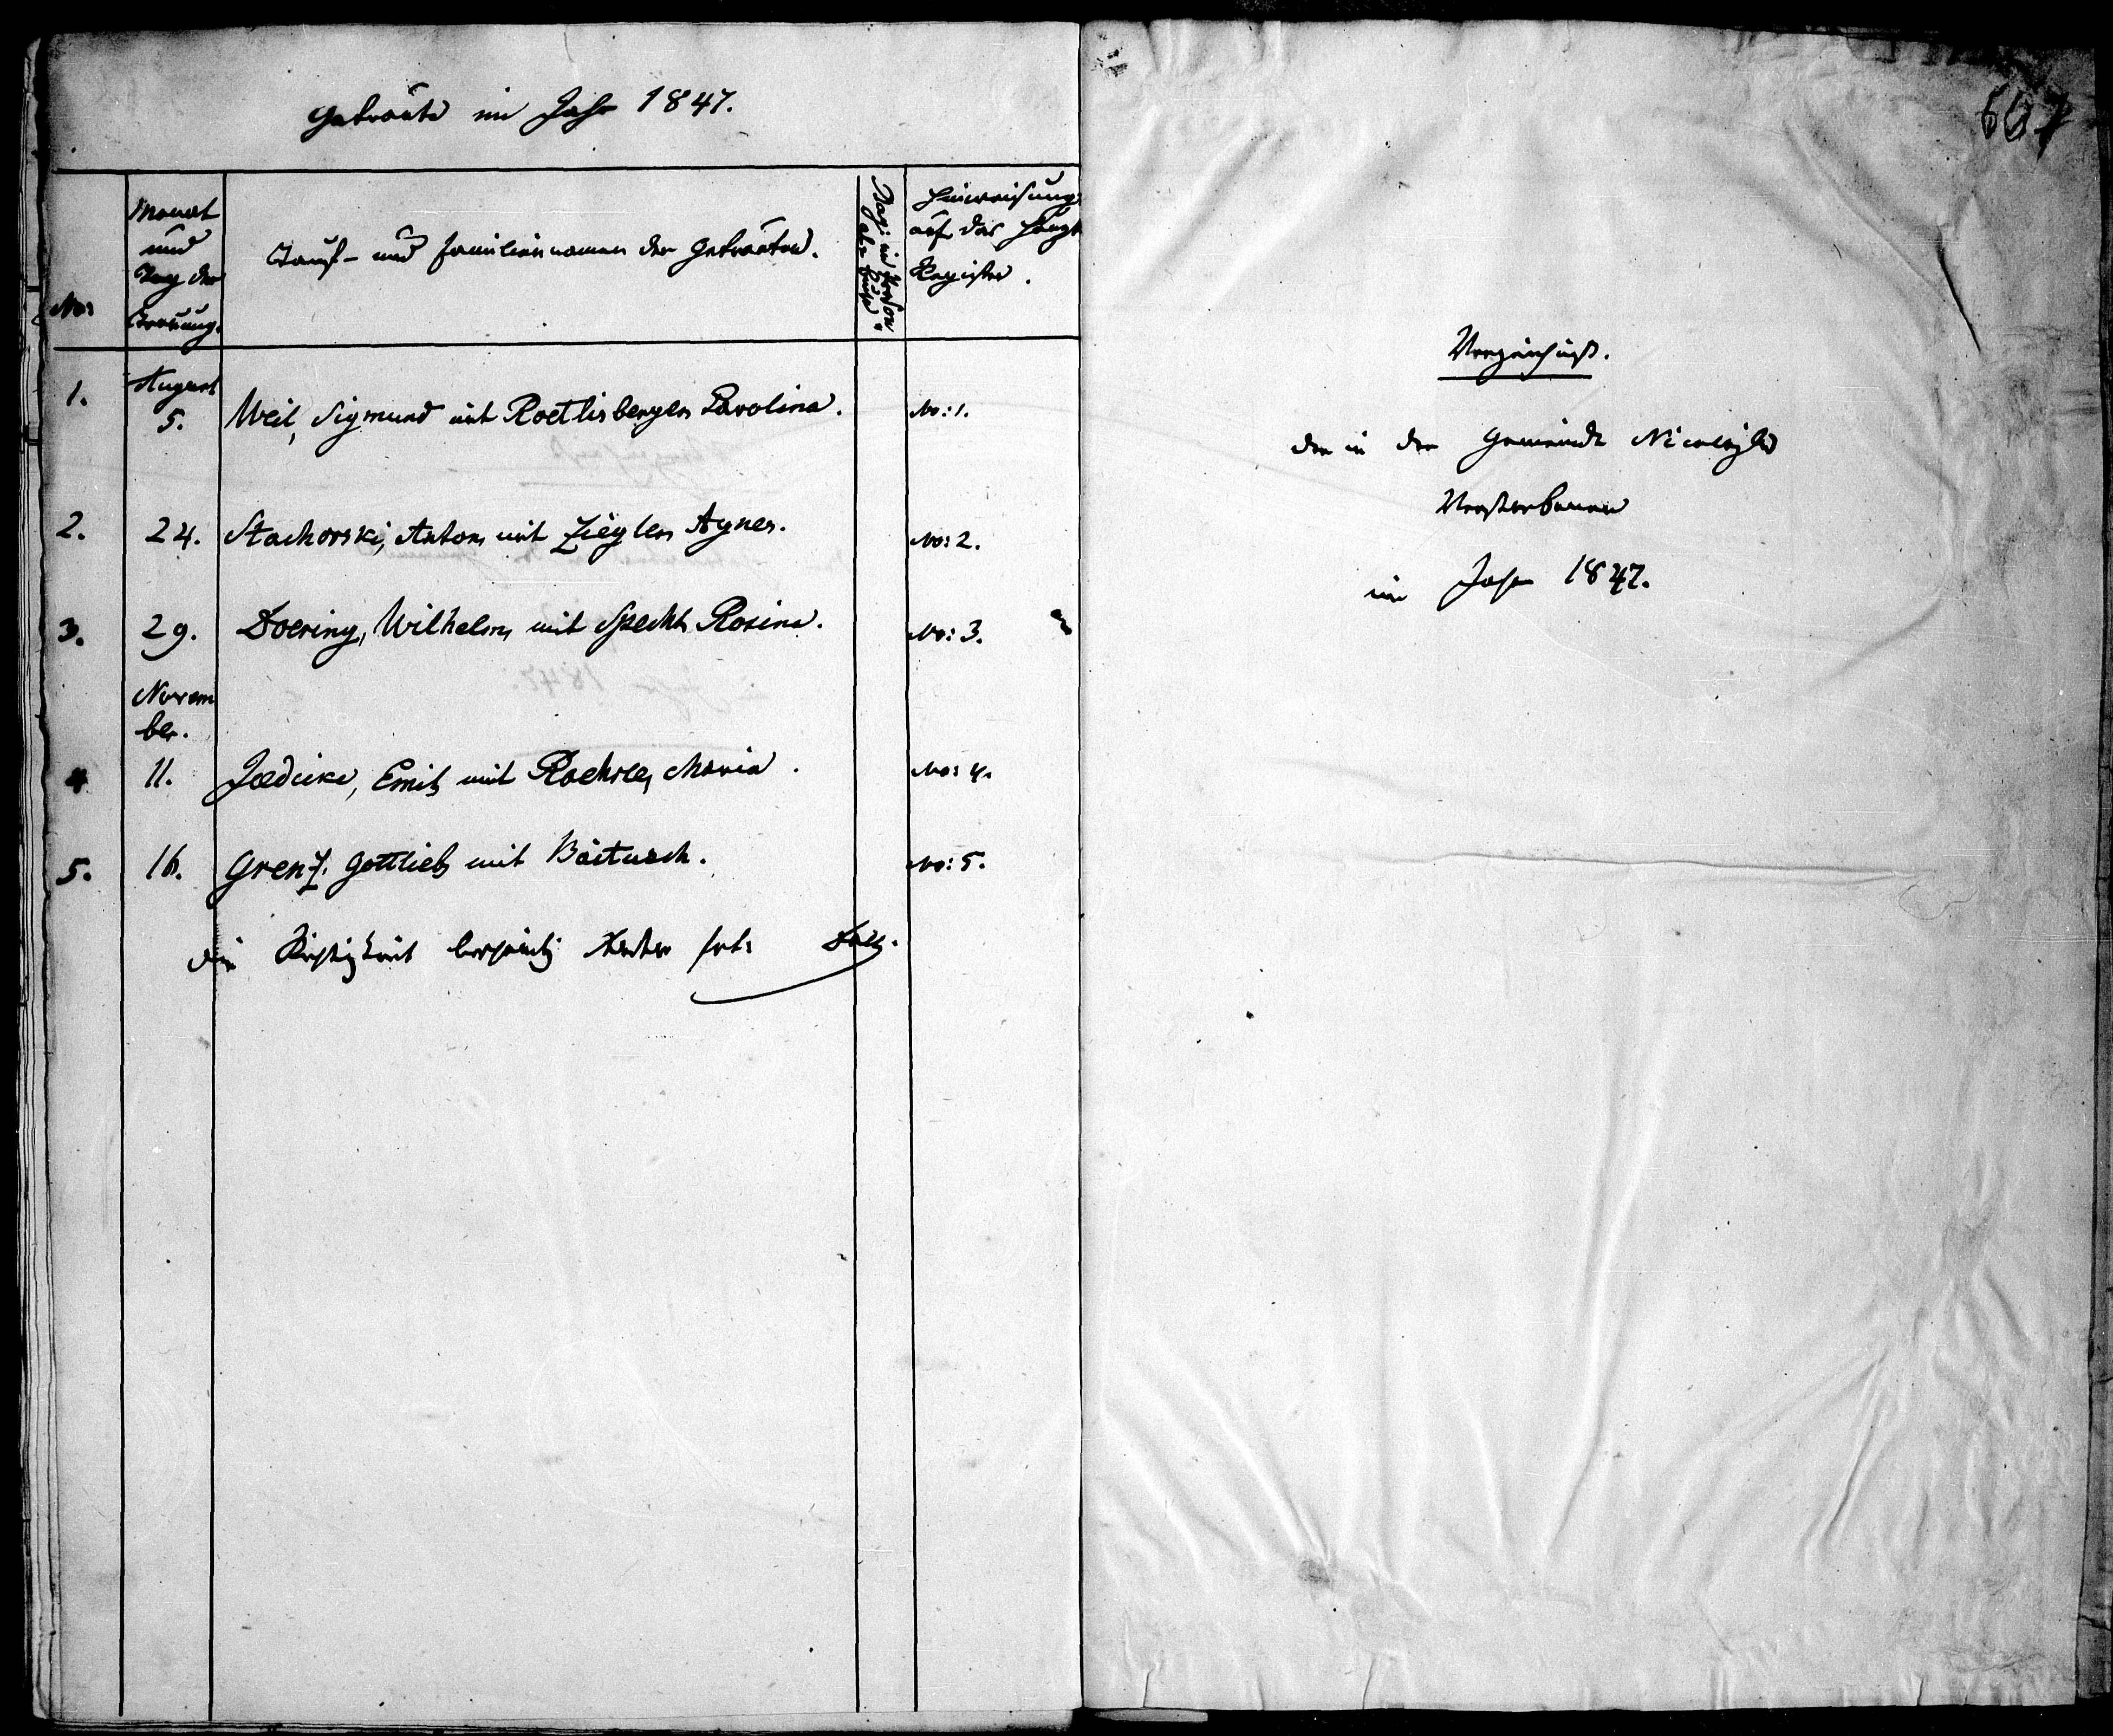 Getraute im Jahr 1847.
No:
Monat
und
Tag der
Trauung.
Tauf- und Familiennamen der Getrauten.
Hinweisung
auf das Haupt
Register.
1.
August
5.
Weil, Sigmund mit Roethlisberger Carolina.
No: 1.
2.
24.
Stachorski, Anton mit Ziegler Agnes.
No: 2.
3.
29.
Doering, Wilhelm mit Specht Rosina.
No: 3.
Novem
ber.
4
11.
Jaedicke, Emil mit Maria.
No: 4.
5.
16.
Grenz. Gottlieb mit Baitusch.
No: 5.
die Richtigkeit bescheinigt
667
Verzeichniß.
der in der Gemeinde
Verstorbenen
im Jahr 1847.